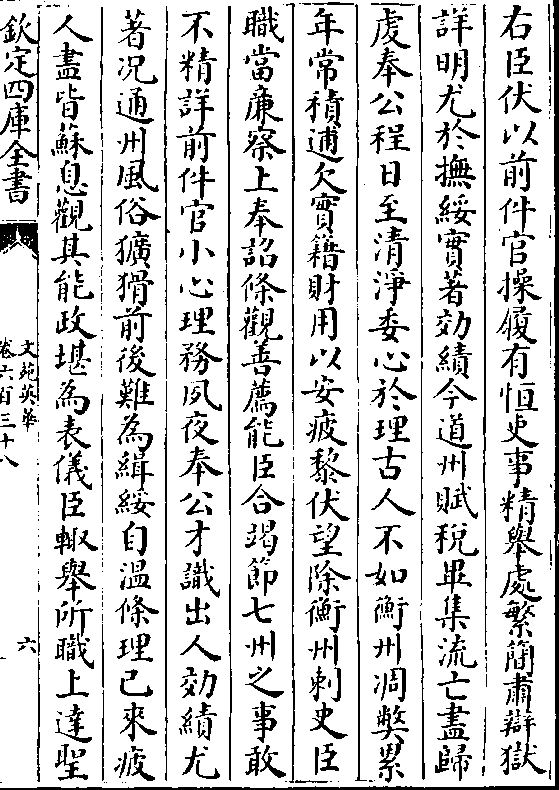 右臣伏以前件官操履有恒吏事精舉處繁簡肅辯獄
詳明尤於撫綏實著効績今道州賦稅畢集流亡盡歸
虔奉公程日至清淨委心於理古人不如衡州凋弊累
年常積逋欠實籍財用以安疲黎伏望除衡州刺史臣
職當廉察上奉詔條觀善薦能臣合竭節七州之事敢
不精詳前件官小心理務夙夜奉公才識出人効績尤
著况通州風俗獷猾前後難為緝綏自温條理已來疲
人盡皆蘇息觀其能政堪為表儀臣輙舉所職上達聖
欽定四庫全書
文苑英華
卷六百三十八
六